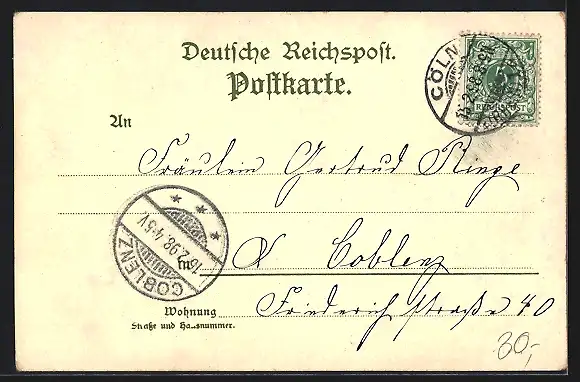 Deutsche Reichspost.
Postkarte.
CÖLN
REICHSPOST
An
Fräulein Gertrud
COBLENZ
16.2.98. 4-5 V
in Coblenz
Wohnung
Straße und Hausnummer.
Friedrichstraße 40
30,-